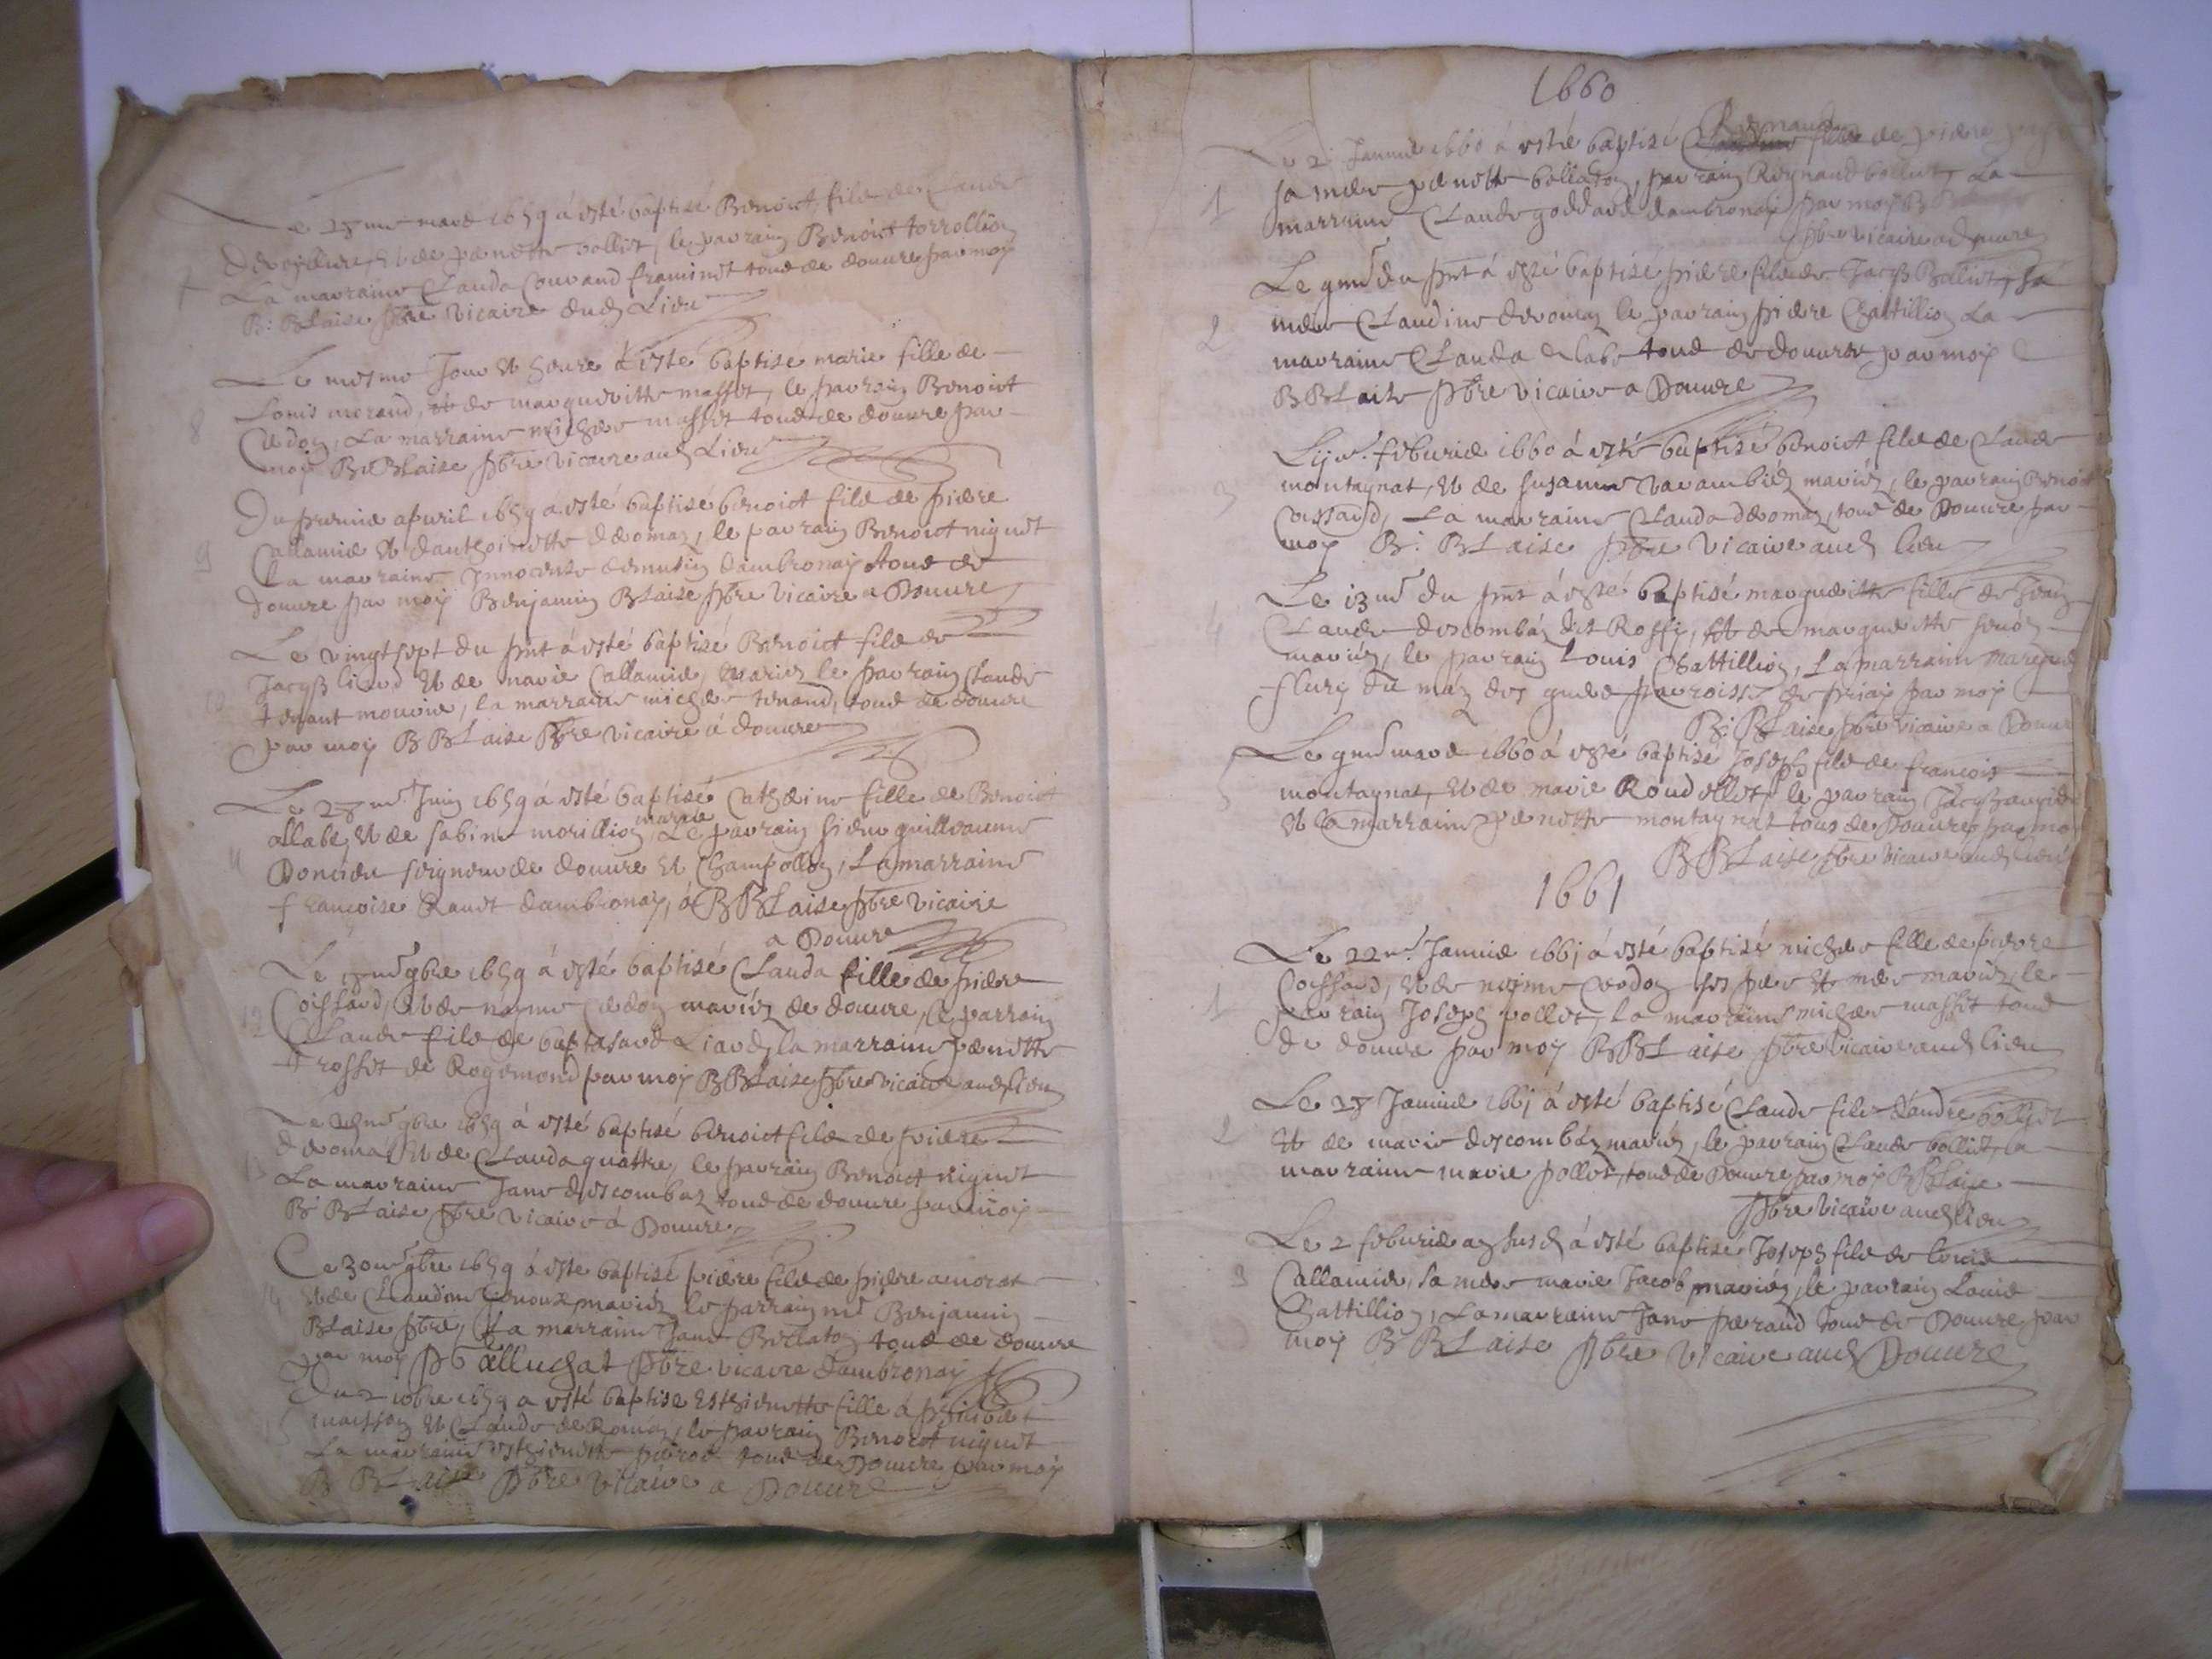 Le 25me mars 1659 á esté baptisé Benoict filz de Claude
Deroydieu, et de pernette bolliet, le parrain Benoict torrollion
7 La marraine Clauda Convand framinet tous de douure par moy
B: BLaise pbre vicaire dud Lieu
Le mesme Jour et heure á esté baptise marie fille de
Louis morand, et de margueritte masset, le parrain Benoict
8 Credoz, La marraine michere masset tous de douure par
moy B BLaise pbre vicaire aud Lieu
Du premier apuril 1659 á esté baptisé benoict filz de piere
Callamier et danthoinette deromaz, le parrain Benoict niguet
9 La marraine Innocente demusin dambronay tous de
Douure par moy Benjamin BLaise pbre vicaire a Douure
Le vingt sept du pnt á esté baptisé Benoict filz de
Jacqs liard et de marie Callamier, mariez le parrain Claude
10 tenant mounier, la marraine michere tenand, tous de douure
par moy B BLaise Pbre vicaire á douure
Le 25me Juin 1659 á esté baptisé Catherine fille de Benoict
allabe, et de sabine morillion mariez, Le parrain sieur guilleaume
11 Doncieu seigneur de douure et Champollon, La marraine
francoise Raudt dambronay, á B BLaise pbre vicaire
a Douure
Le 9bre 1659 á esté baptisé Clauda fille de piere
Coissard, et de noeme Credoz mariéz de douure, le parrain
12 Claude filz de baltasard Liard, la marraine pernette
trosset de Rogemond par moy B BLaise pbre vicaire aud lieu
Le 9bre 1659 á esté baptisé benoict filz de piere
deromáz et de Clauda quattre, le parrain Benoict niguet
13 La marraine Jane descombaz tous de douure par moy
B: BLaise pbre vicaire á Douure
Le 30me 9bre 1659 á esté baptisé piere filz de piere amorat
14 et de Claudine Genoux mariéz le parrain mre Benjamin
BLaise pbre, La marraine Jane Bollaton tous de douure
par moy alluchat pbre vicaire dambronay
Du 2 10bre 1659 a esté baptise Esthienette fille á
15 maisson et Claude de Romáz, le parrain Benoict niguet
La marraine esthienette perrot tous de Douure par moy
B BLaise Pbre vicaire a Douure
1660
Reynaud
Le 2 Januier 1660 á esté baptisé filz de piere
1 sa mere pernette bollaton, parrain Reynaud bolliet, La
marraine Claude goddard dambronay par moy B
pbre vicaire a douure
Le du pnt á esté baptisé piere filz de Jacqs Bolliet, sa
2 mere Claudine deromaz le parrain piere Chattillion La
marraine Clauda Labe tous de douure par moy
B BLaise pbre vicaire a Douure
Feburier 1660 á esté baptisé benoict filz de Claude
3 montagnat, et de susanne varambiez mariéz, le parrain Benoict
Coissard, La marraine Clauda deromáz, tous de Douure par
moy B: BLaise pbre vicaire aud lieu
Le 13me du pnt á esté baptisé marguerite fille de Jean
4 Claude descombáz dit Rossy, et de marguerite
mariéz, le parrain Louis Chattillion, La marraine
fleury du máz des parroisse de priay par moy
B: BLaise pbre vicaire a Douure
Le mars 1660 á esté baptisé Joseph filz de francois
5 montagnat, et de marie Roudellet, le parrain Jacqs
et la marraine pernette montagnat tous de Douure par moy
B BLaise pbre vicaire aud lieu
1661
Le 22me Januier 1661 á esté baptisé michere fille de piere
1 Coissard, et de noeme Credoz ses pere et mere mariéz, le
parrain Joseph pollet, la marraine michere masset tous
de douure par moy B BLaise pbre vicaire aud lieu
Le 25 Januier 1661 á esté baptisé Claude filz dandre bolliet
2 et de marie descombáz mariéz, le parrain Claude bolliet, la
marraine marie pollet, tous de Douure par moy B BLaise
pbre vicaire aud lieu
Le 2 feburier an susd á esté baptisé Joseph filz de louis
3 Callamier, sa mere marie Jacob, mariéz, le parrain Louis
Chattillion, La marraine Jane peraud tous de Douure par
moy B BLaise pbre vicaire aud Douure